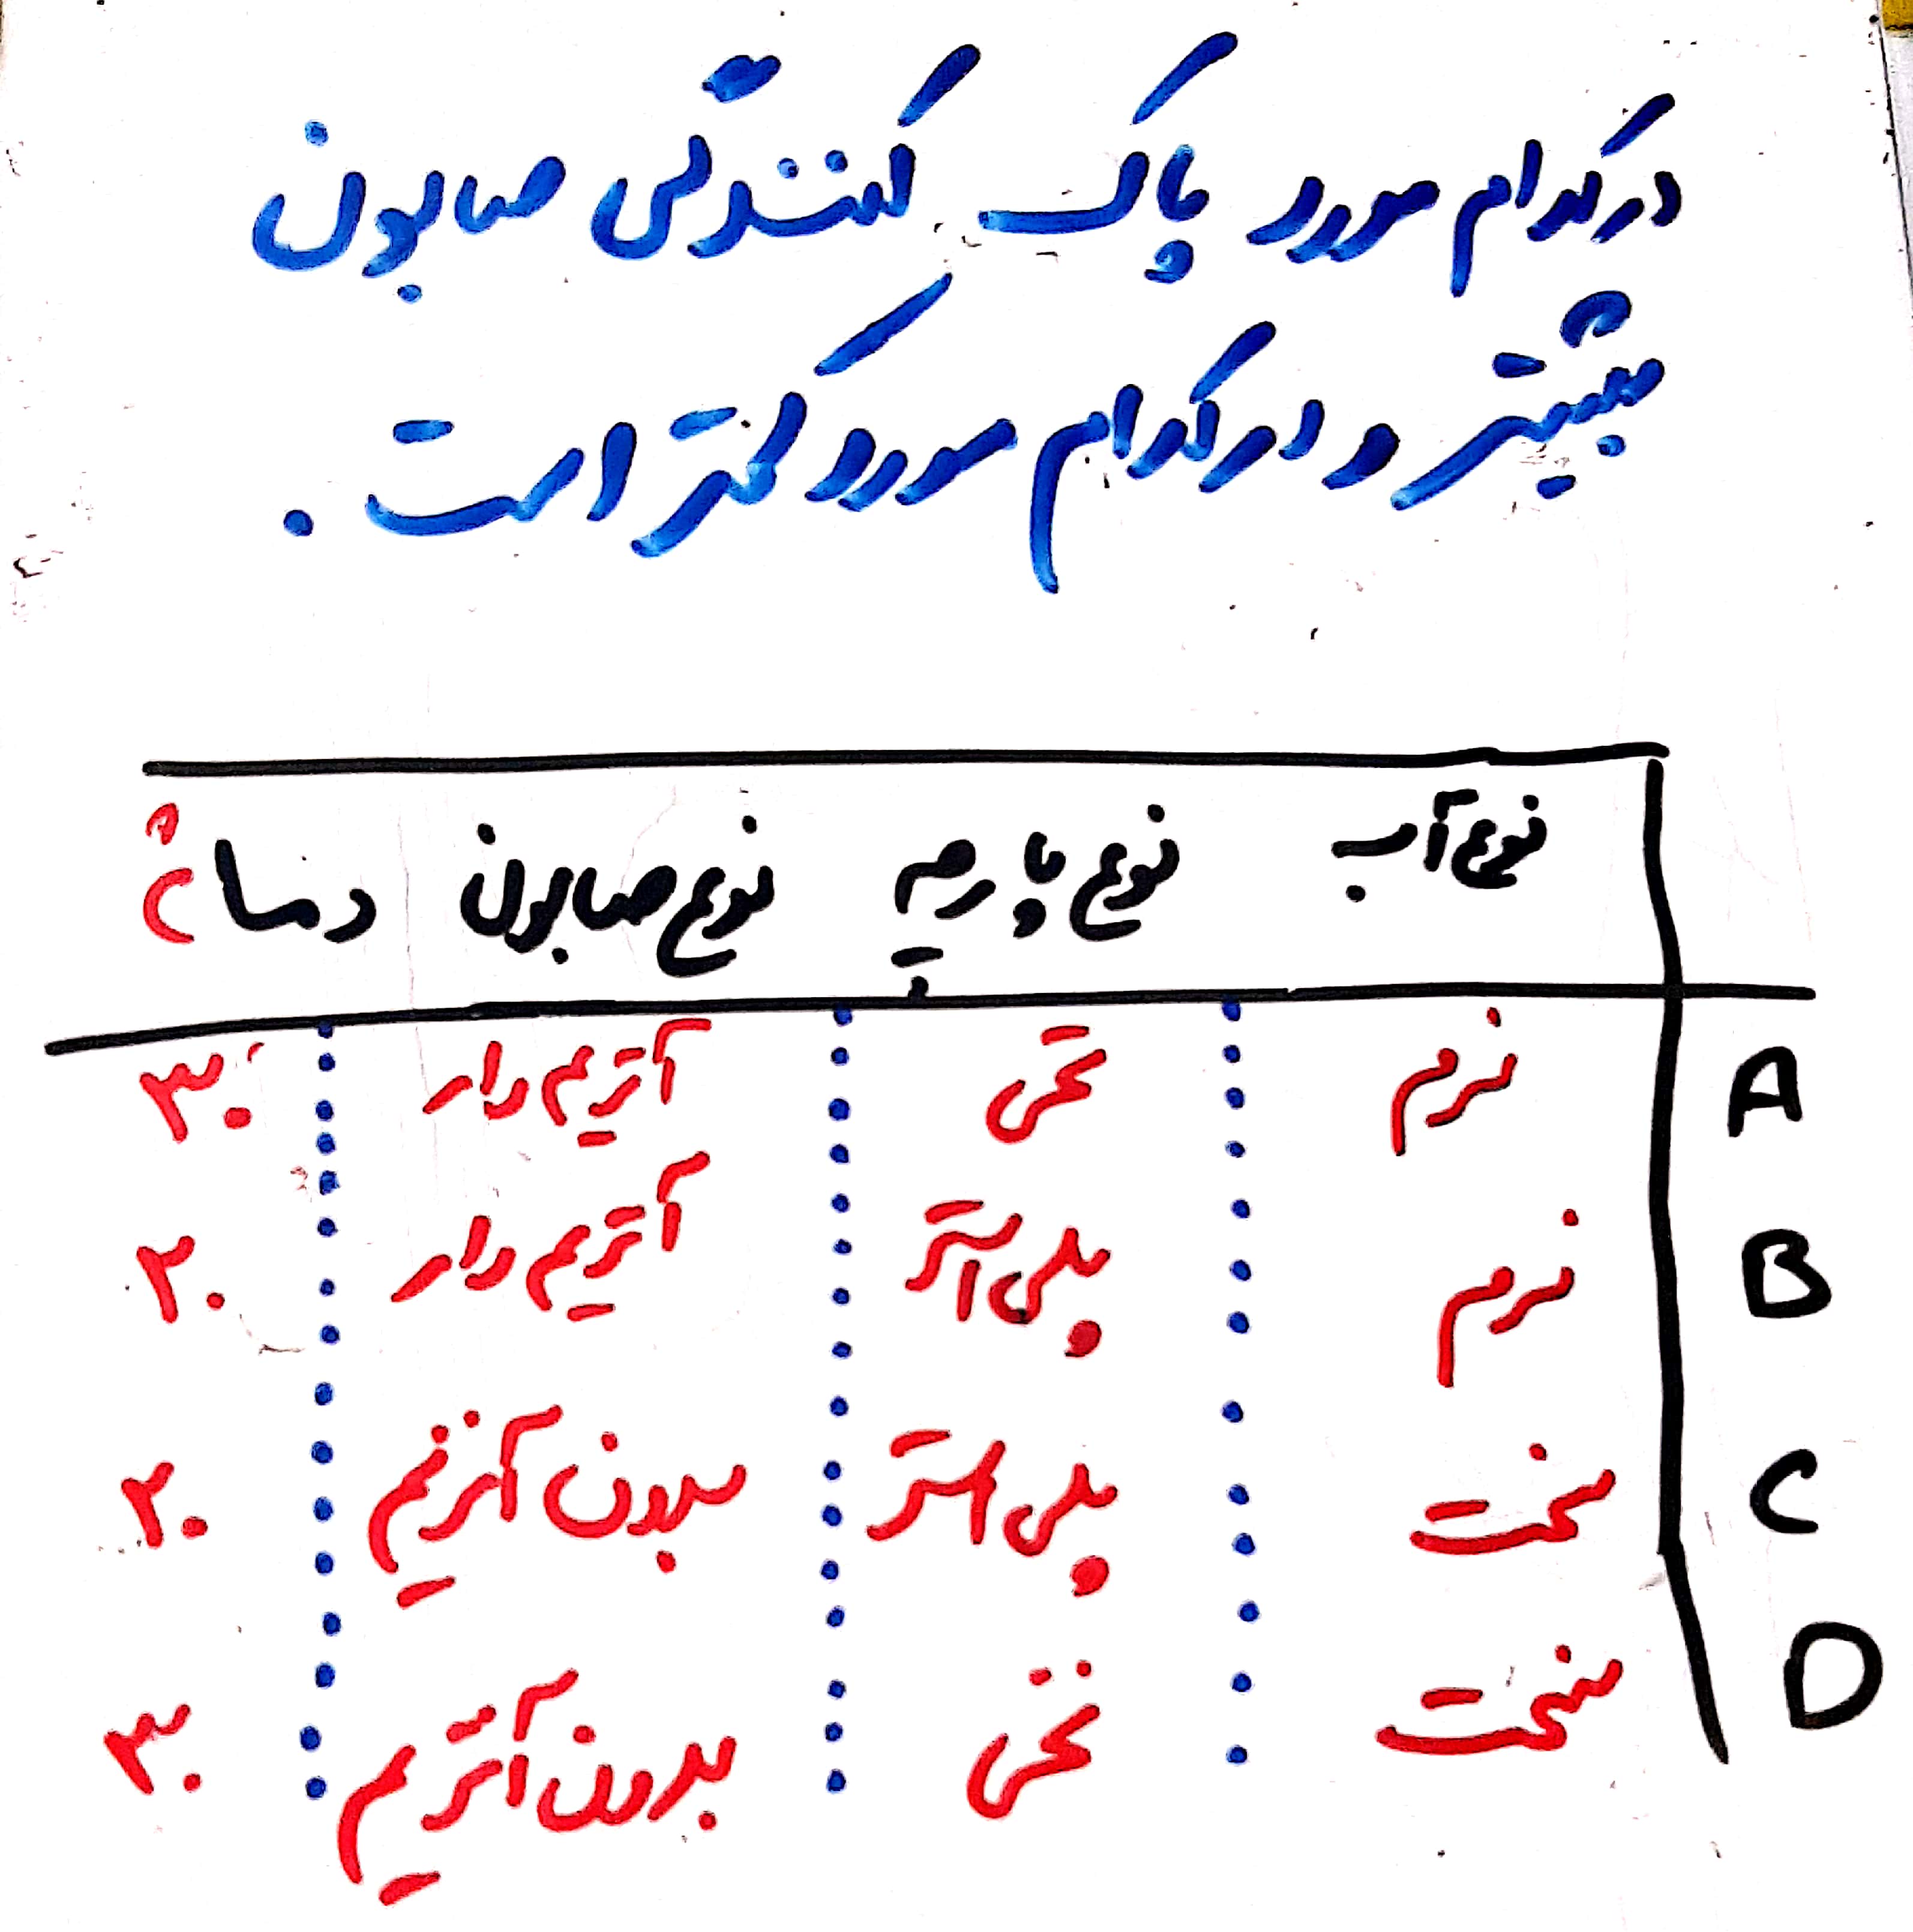 در کدام مورد پاک کنندگی صابون
بیشتر و در کدام مورد کمتر است .
نوع آب نوع پارچه نوع صابون دما °C
A نرم نخی آنزیم دار ۳۰
B نرم پلی استر آنزیم دار ۲۰
C سخت پلی استر بدون آنزیم ۲۰
D سخت نخی بدون آنزیم ۳۰